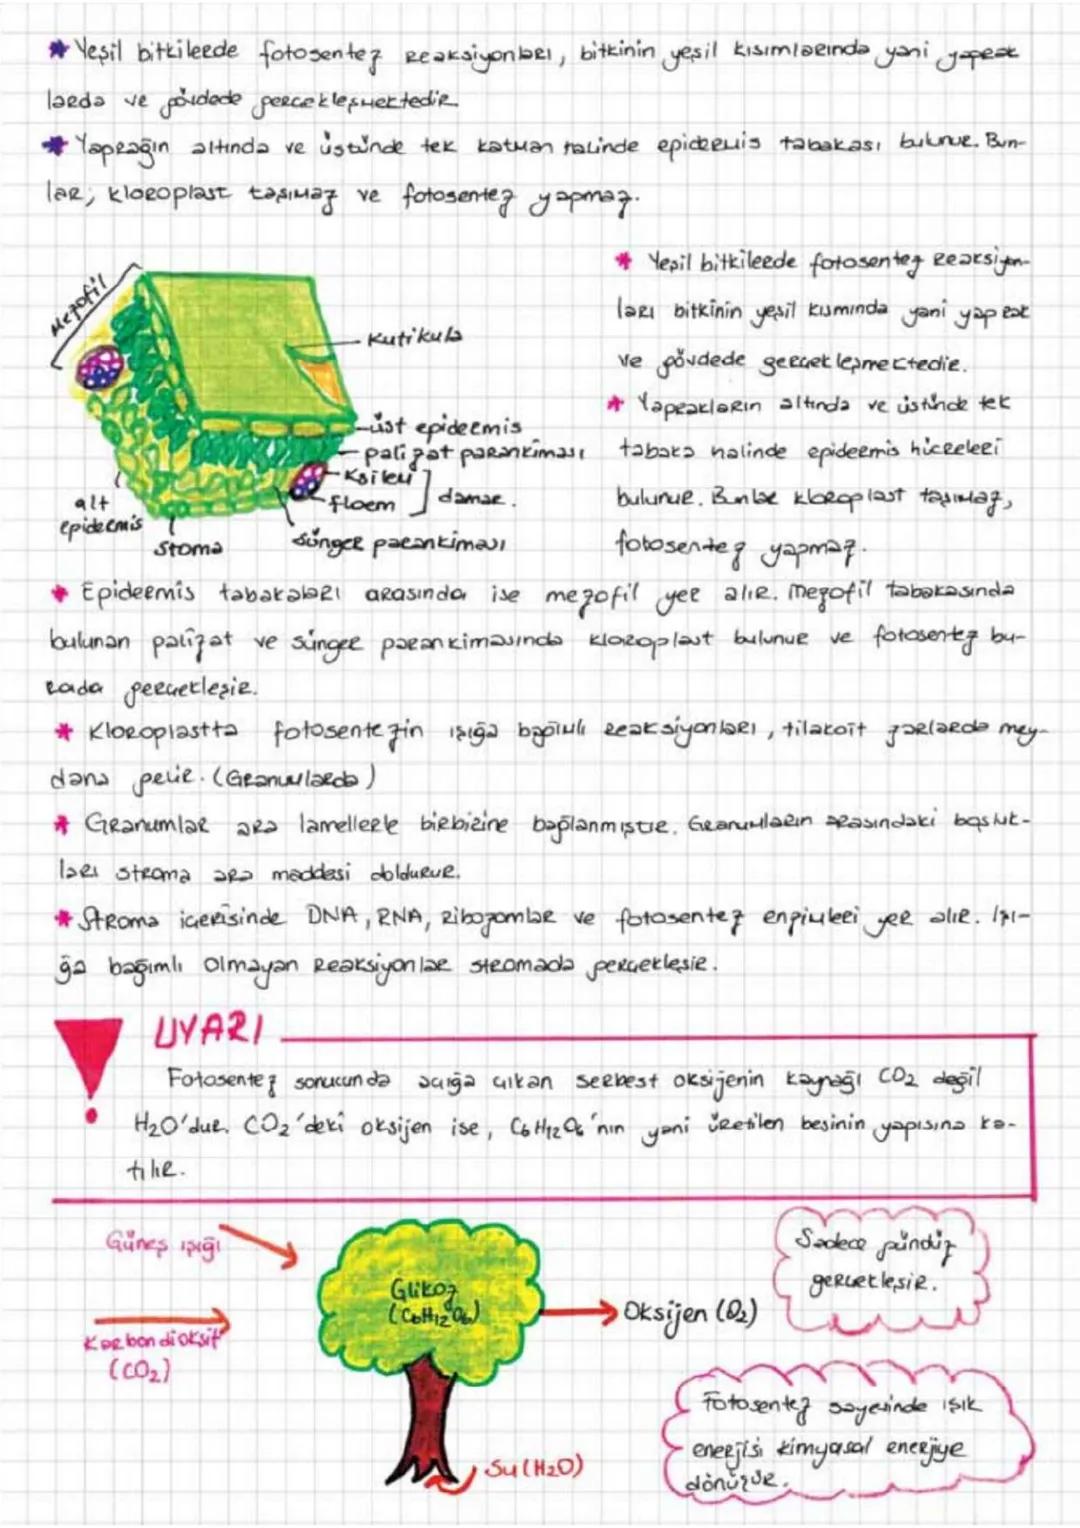 * Yeşil bitkilerde fotosentez reaksiyonları, bitkinin yeşil kısımlarında yani yaprak
larda ve gövdede gerçekleşmektedir.
* Yaprağın altında ve üstünde tek katman halinde epidermis tabakası bulunur. Bun-
lar; kloroplast taşımaz ve fotosentez yapmaz.
Mezofil
Kutikula
üst epidermis
palizat parankiması
Ksilem
floem
damar.
alt
epidermis
Stoma
Sünger parankiması
* Yeşil bitkilerde fotosentez reaksiyon-
ları bitkinin yeşil kısmında yani yaprak
ve gövdede gerçekleşmektedir.
* Yaprakların altında ve üstünde tek
tabaka halinde epidermis hücreleri
bulunur. Bunlar kloroplast taşımaz,
fotosentez yapmaz.
* Epidermis tabakaları arasında ise mezofil yer alır. Mezofil tabakasında
bulunan palizat ve sünger parankimasında kloroplast bulunur ve fotosentez bu-
rada gerçekleşir.
* Kloroplastta fotosentezin ışığa bağımlı reaksiyonları, tilakoit zarlarda mey-
dana gelir. (Granumlarda)
* Granumlar ara lamellerle birbirine bağlanmıştır. Granumların arasındaki boşluk-
ları stroma ara maddesi doldurur.
* Stroma içerisinde DNA, RNA, Ribozomlar ve fotosentez enzimleri yer alır. Işı-
ğa bağımlı olmayan reaksiyonlar stromada gerçekleşir.
UYARI
Fotosentez sonucunda açığa çıkan serbest oksijenin kaynağı CO₂ değil
H₂O'dur. CO₂'deki oksijen ise, C₆H₁₂O₆'nın yani üretilen besinin yapısına ka-
tılır.
Güneş ışığı
Karbondioksit
(CO₂)
Glikoz
(C₆H₁₂O₆)
Oksijen (O₂)
Su (H₂O)
Sadece gündüz
gerçekleşir.
Fotosentez sayesinde ışık
enerjisi kimyasal enerjiye
dönüşür.